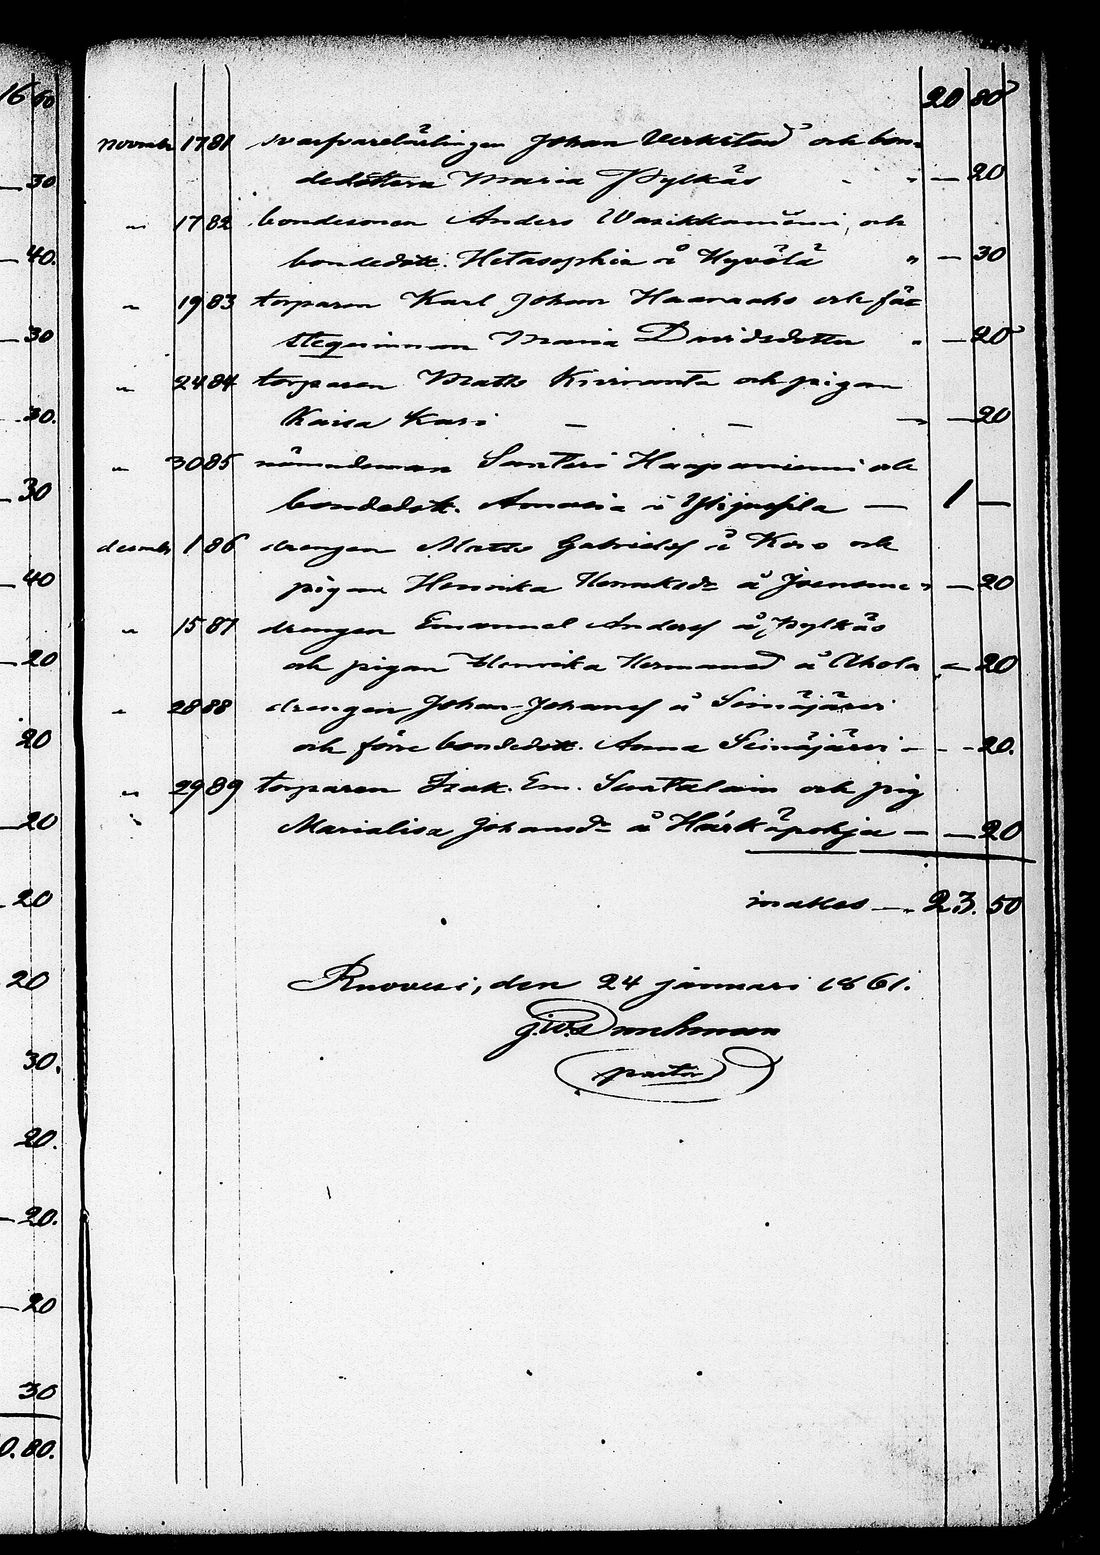 16 60
30
40.
30
30.
30
40
20
20
20
20
20
30.
20.
20.
20
30
0.80.
20 80
november 17 81 svarfvarelärlingen Johan Verkstad och bon-
dedottern Maria Pylkäs " — 20
" 17 82 bondesonen Anders och
bondedott. Hetasophia å Hyvölä " — 30
" 19 83 torparen Karl Johan Haanaho och fäs-
teqvinnan Maria Davidsdotter " — 20
" 24 84 torparen Matts Kiviranta och pigan
Kaisa Kasi — — — 20
" 30 85 nämndeman Santeri Haapaniemi och
bondedott. Amalia — 1 —
december 1 86 drengen Matts Gabrielss å Koro och
pigan Henrika Henriksdr å — 20
" 15 87 drengen Emanuel Anderss å Pylkäs
och pigan Henrika Hermansd å Ahola — 20
" 28 88 drengen Johan Johanss å Seinäjärvi
och förre bondedott. Anna Seinäjärvi — — 20.
" 29 89 torparen Isak. Em. Santalain och pig
Marialisa Johansdr å Härkäpohja — — 20
inalles — 23. 50
Ruovesi, den 24 januari 1861.
G.W.
pastor